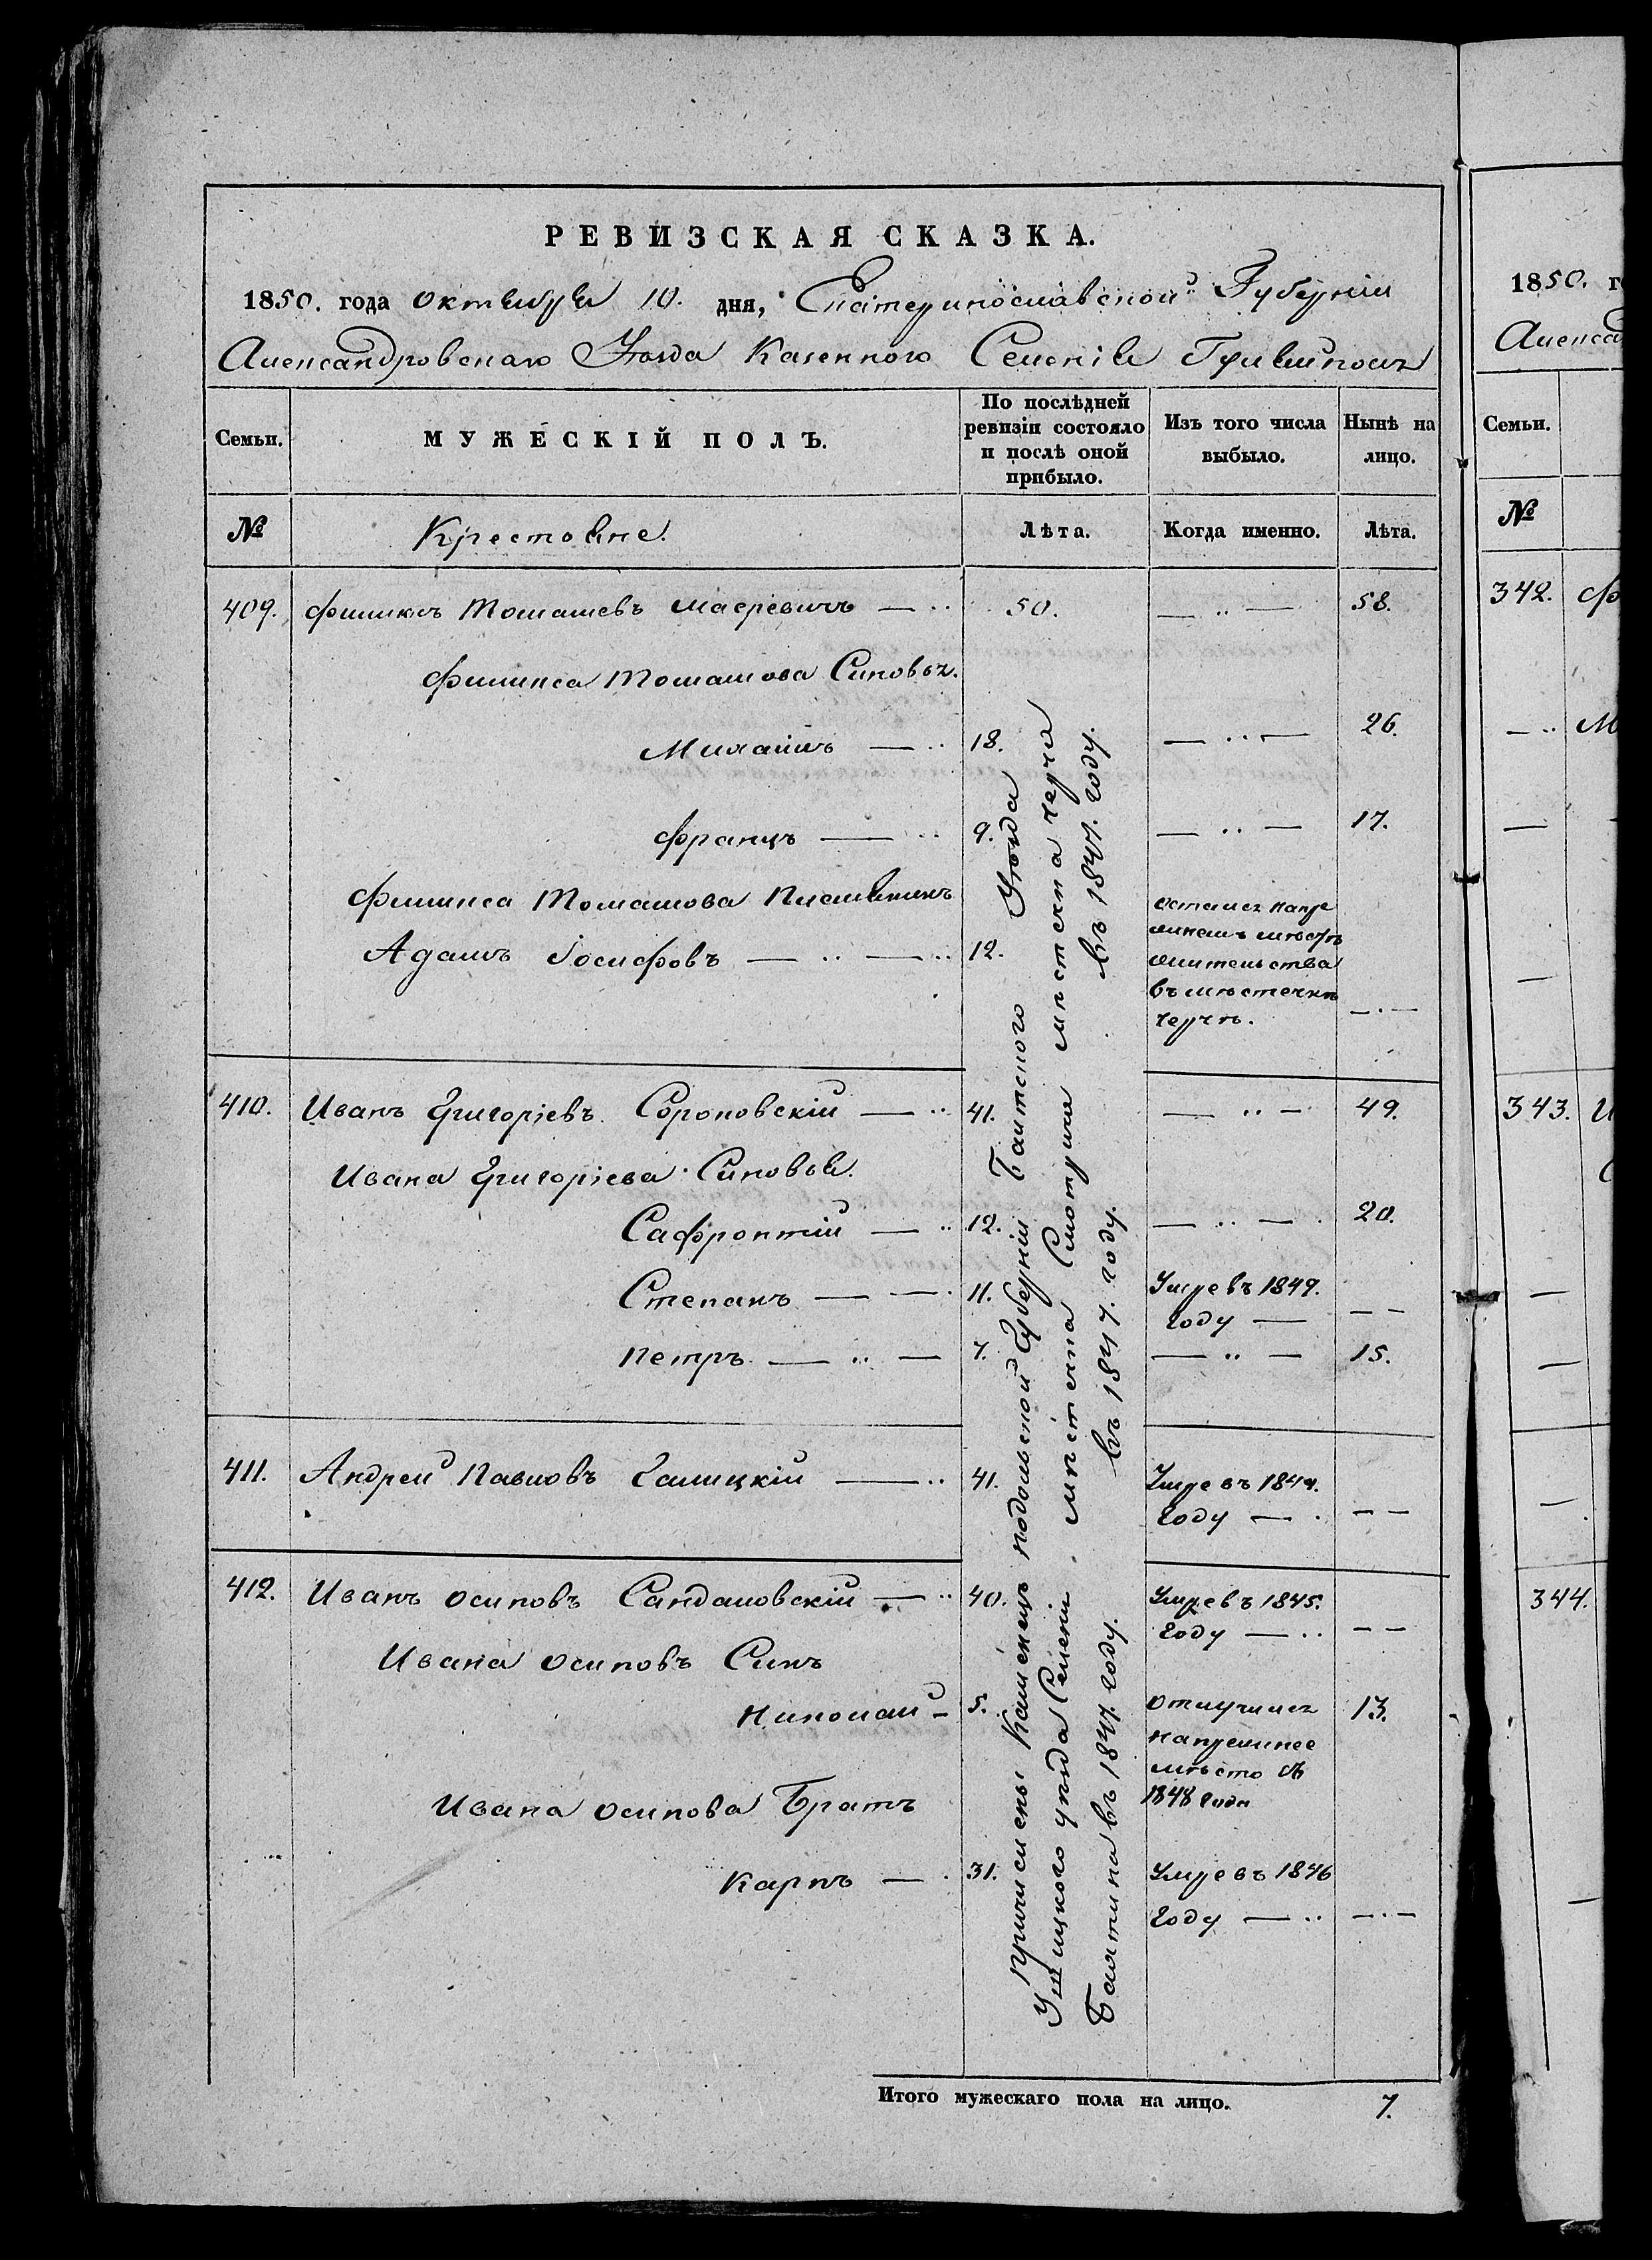 РЕВИЗСКАЯ СКАЗКА.
1850. года октября 10. дня, Екатеринославской Губерніи
Александровскаго Уѣзда Казенного Селенія Гуляйполя
Семьи.
МУЖЕСКІЙ ПОЛЪ.
По послѣдней
ревизіи состояло
и послѣ оной
прибыло.
Изъ того числа
выбыло.
Нынѣ на
лицо.
№
Крестьяне.
Лѣта.
Когда именно.
Лѣта.
409. Филиксъ Томашевъ — 50. — 58.
Филикса Томашова Сыновья.
Михайлъ — 18. — 26.
Францъ — 9. — 17.
Филикса Томашова Племянникъ
Адамъ Іосифовъ — 12.
остался на
жительства
въ мѣстечкѣ
410. Иванъ Григоріевъ — 41. — 49.
Ивана Григоріева Сыновья.
Сафронтій — 12. — 20.
Степанъ — 11. Умре въ 1849.
году —
Петръ — 7. — 15.
411. Андрей Павловъ Галицкій — 41. Умре въ
году —
412. Иванъ Осиповъ Сандаловскій — 40. Умре въ 1845.
году —
Ивана Осиповъ Сынъ
Николай — 5. 13.
отлучился
мѣсто въ
1848 году
Ивана Осипова Братъ
Карпъ — 31. Умре въ 1846
году —
причислены Каменецъ подольской Губерніи Балтского Уѣзда
Ушицкого уѣзда Селенія мѣстечка Смотрича мѣстечка
въ 1847. году. въ 1847. году. въ 1847. году.
Итого мужескаго пола на лицо. 7.
1850. г
Александ
Семьи.
№
342. Ф
М
343. И
С
344.